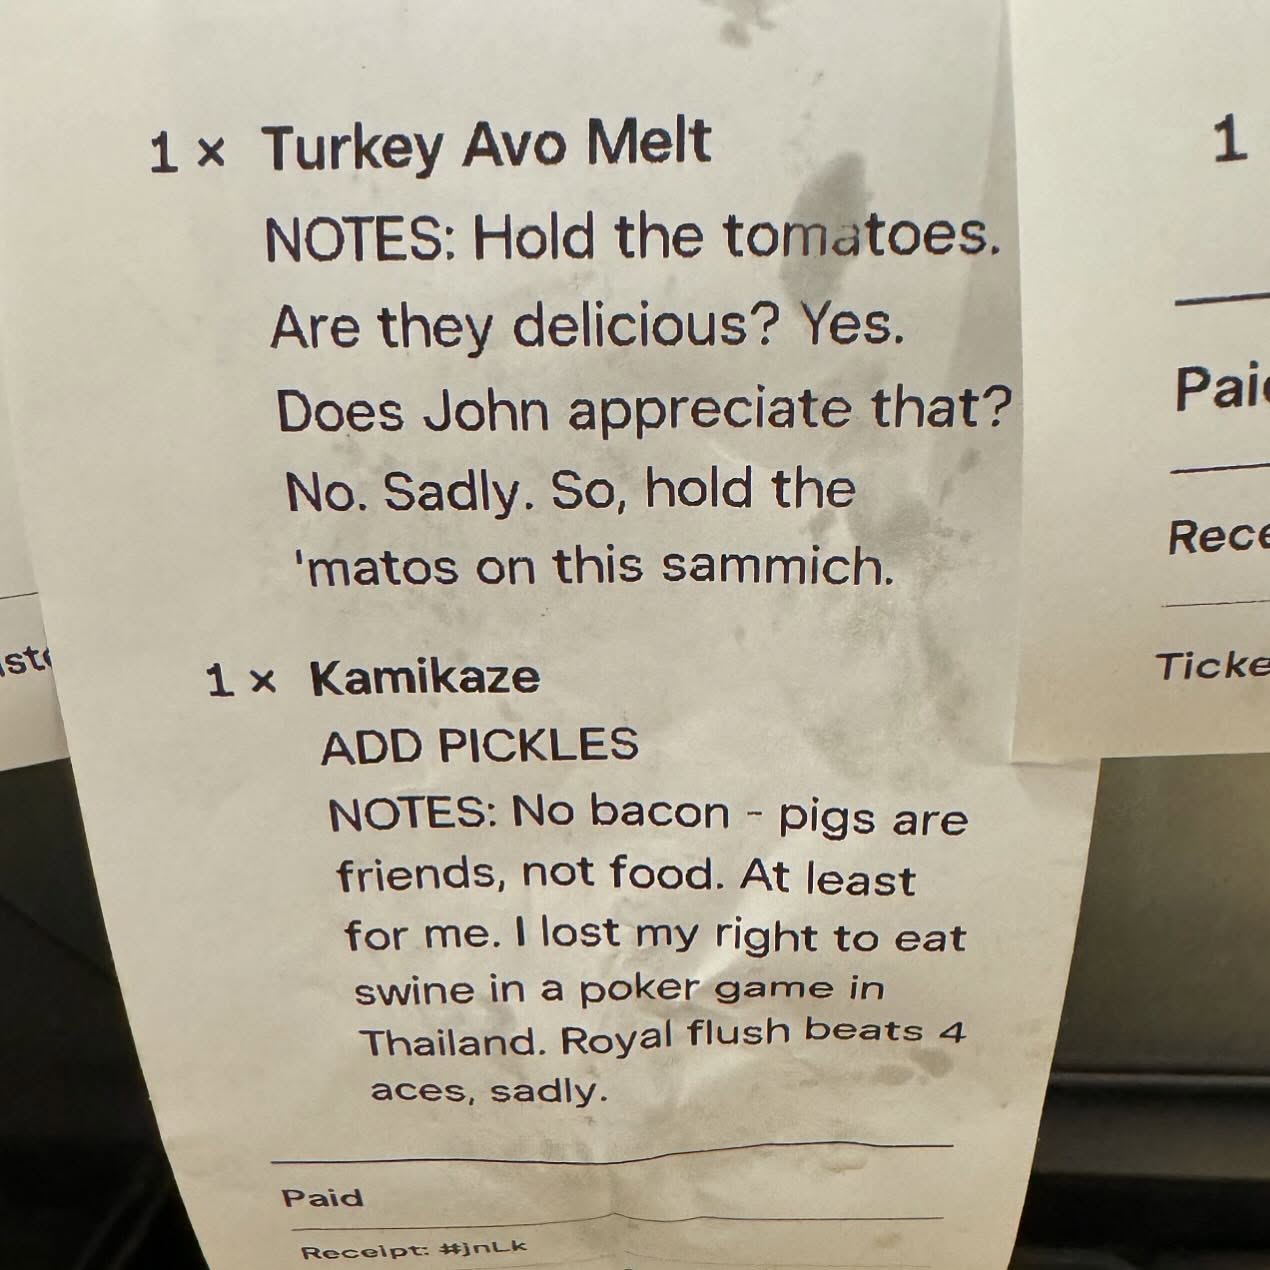 1 × Turkey Avo Melt
NOTES: Hold the tomatoes.
Are they delicious? Yes.
Does John appreciate that?
No. Sadly. So, hold the
'matos on this sammich.
1 × Kamikaze
ADD PICKLES
NOTES: No bacon - pigs are
friends, not food. At least
for me. I lost my right to eat
swine in a poker game in
Thailand. Royal flush beats 4
aces, sadly.
Paid
Receipt: #jnLk
1